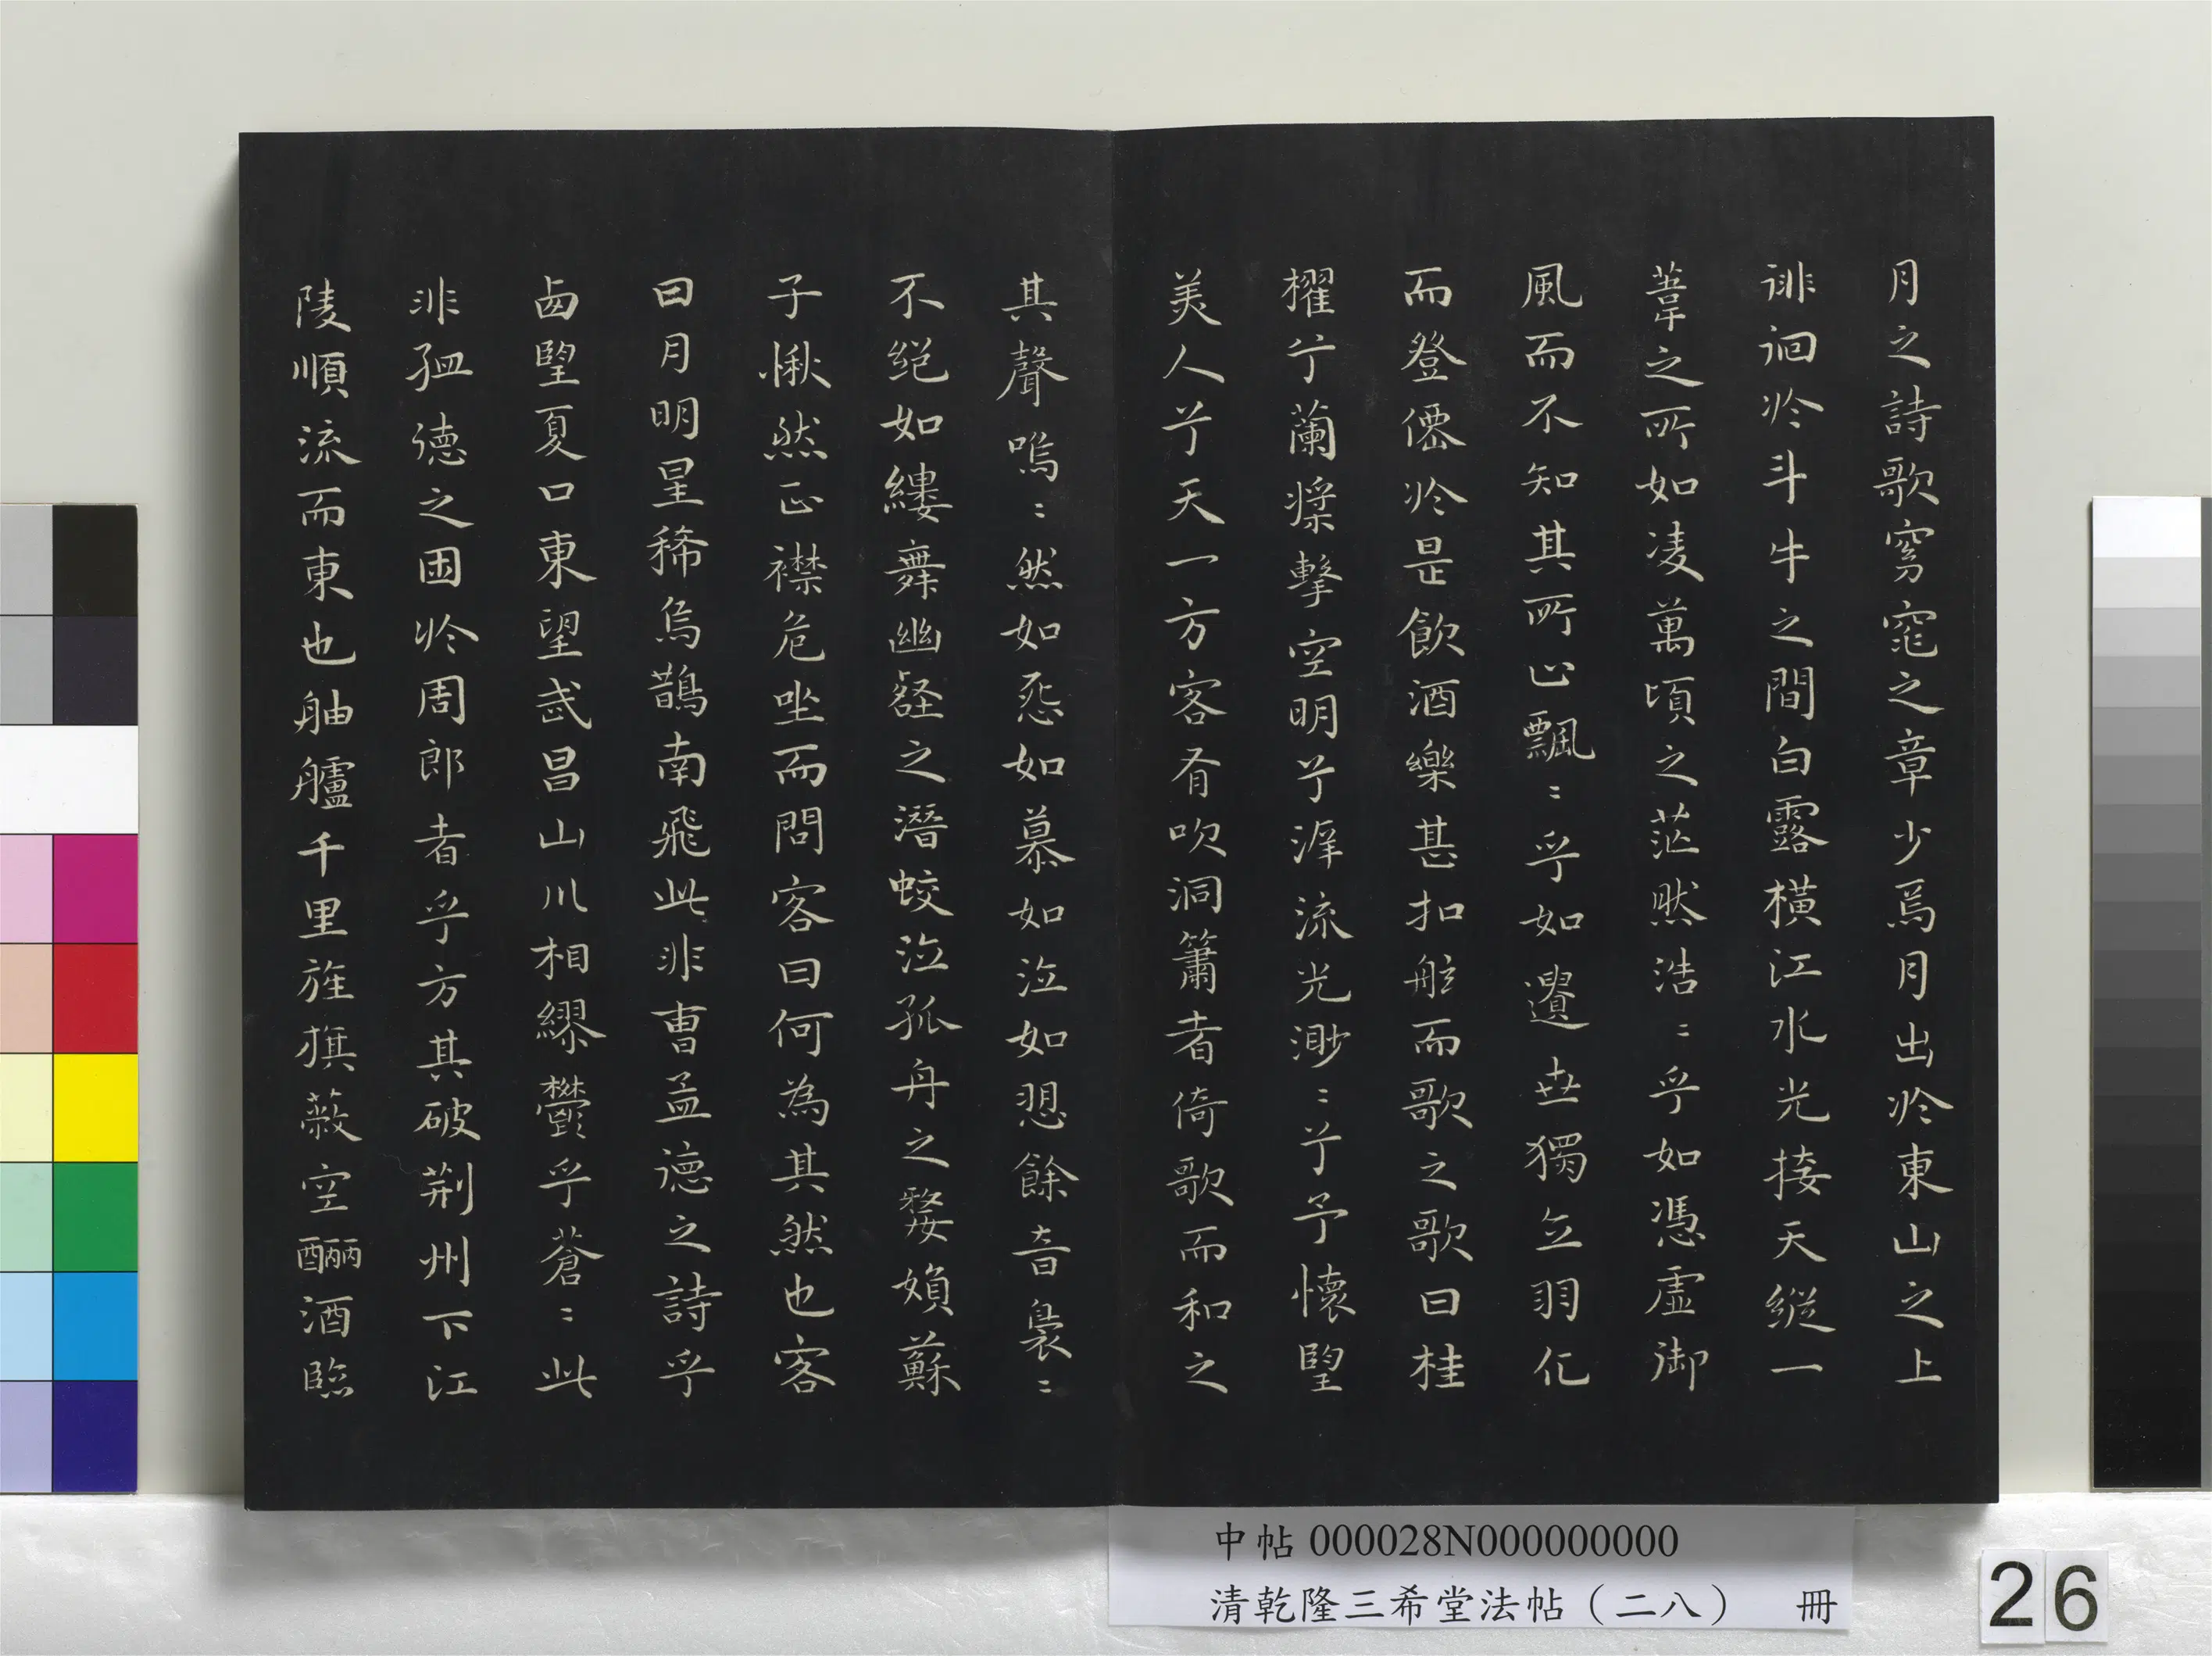 月之詩歌窈窕之章少焉月出於東山之上
徘徊於斗牛之間白露橫江水光接天縱一
葦之所如凌萬頃之茫然浩:乎如馮虛御
風而不知其所止飄:乎如遺世獨立羽化
而登僊於是飲酒樂甚扣舷而歌之歌曰桂
櫂兮蘭槳擊空明兮泝流光渺:兮予懷望
美人兮天一方客有吹洞簫者倚歌而和之
其聲嗚:然如怨如慕如泣如愬餘音裊:
不絕如縷舞幽壑之潛蛟泣孤舟之嫠婦蘇
子愀然正襟危坐而問客曰何為其然也客
曰月明星稀烏鵲南飛此非曹孟德之詩乎
西望夏口東望武昌山川相繆鬱乎蒼:此
非孟德之困於周郎者乎方其破荆州下江
陵順流而東也舳艫千里旌旗蔽空釃酒臨
中帖 000028N000000000
清乾隆三希堂法帖（二八） 冊
26